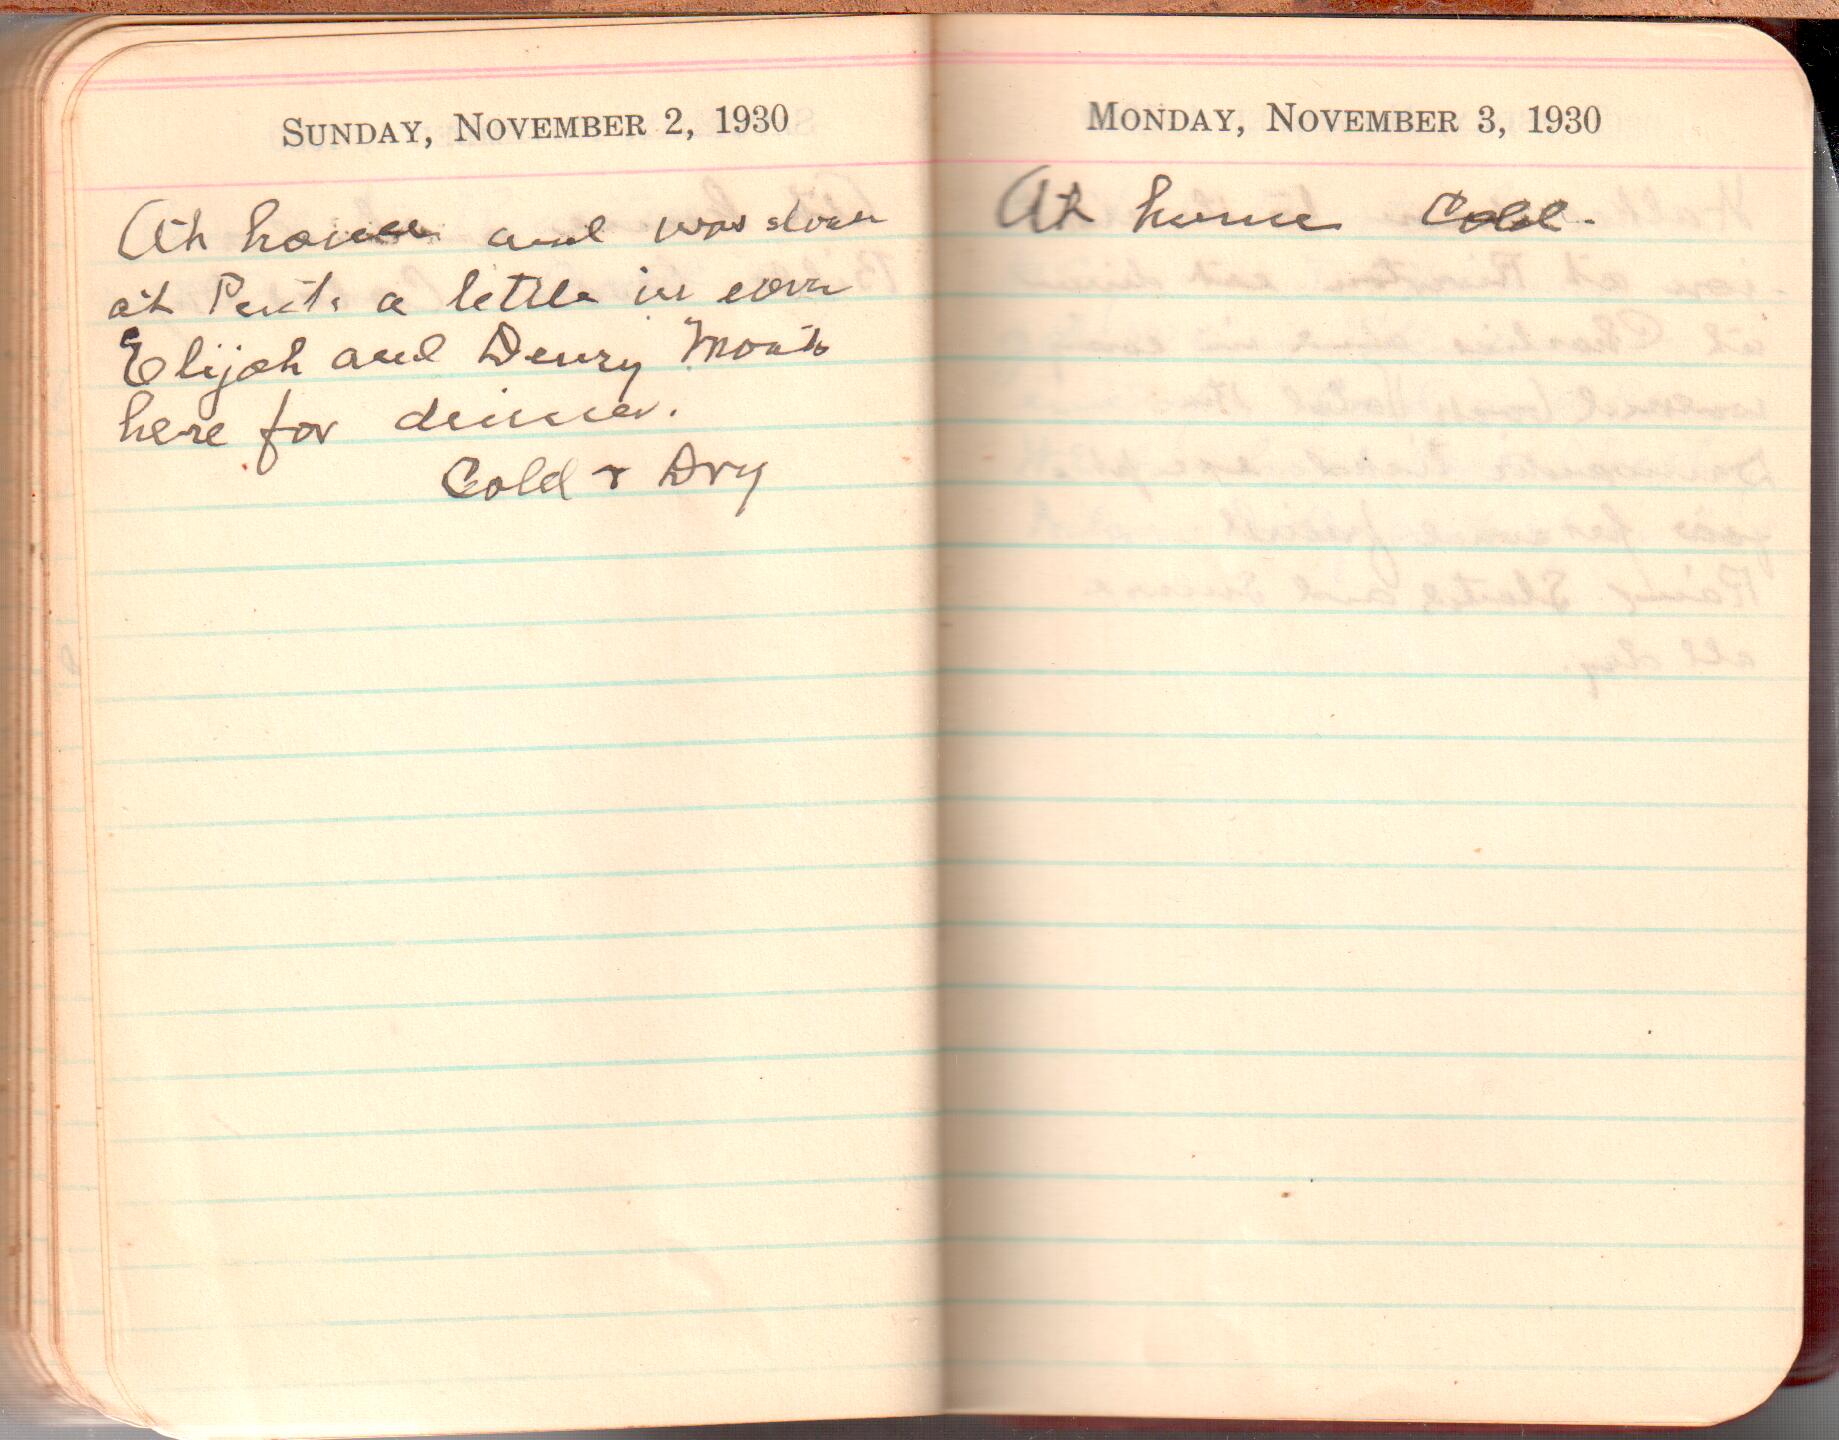 SUNDAY, NOVEMBER 2, 1930
At home and was down
at Perts a little in eovn
Elijah and Denzy Mont
here for dinner.
Cold & Dry
MONDAY, NOVEMBER 3, 1930
At home Cold.